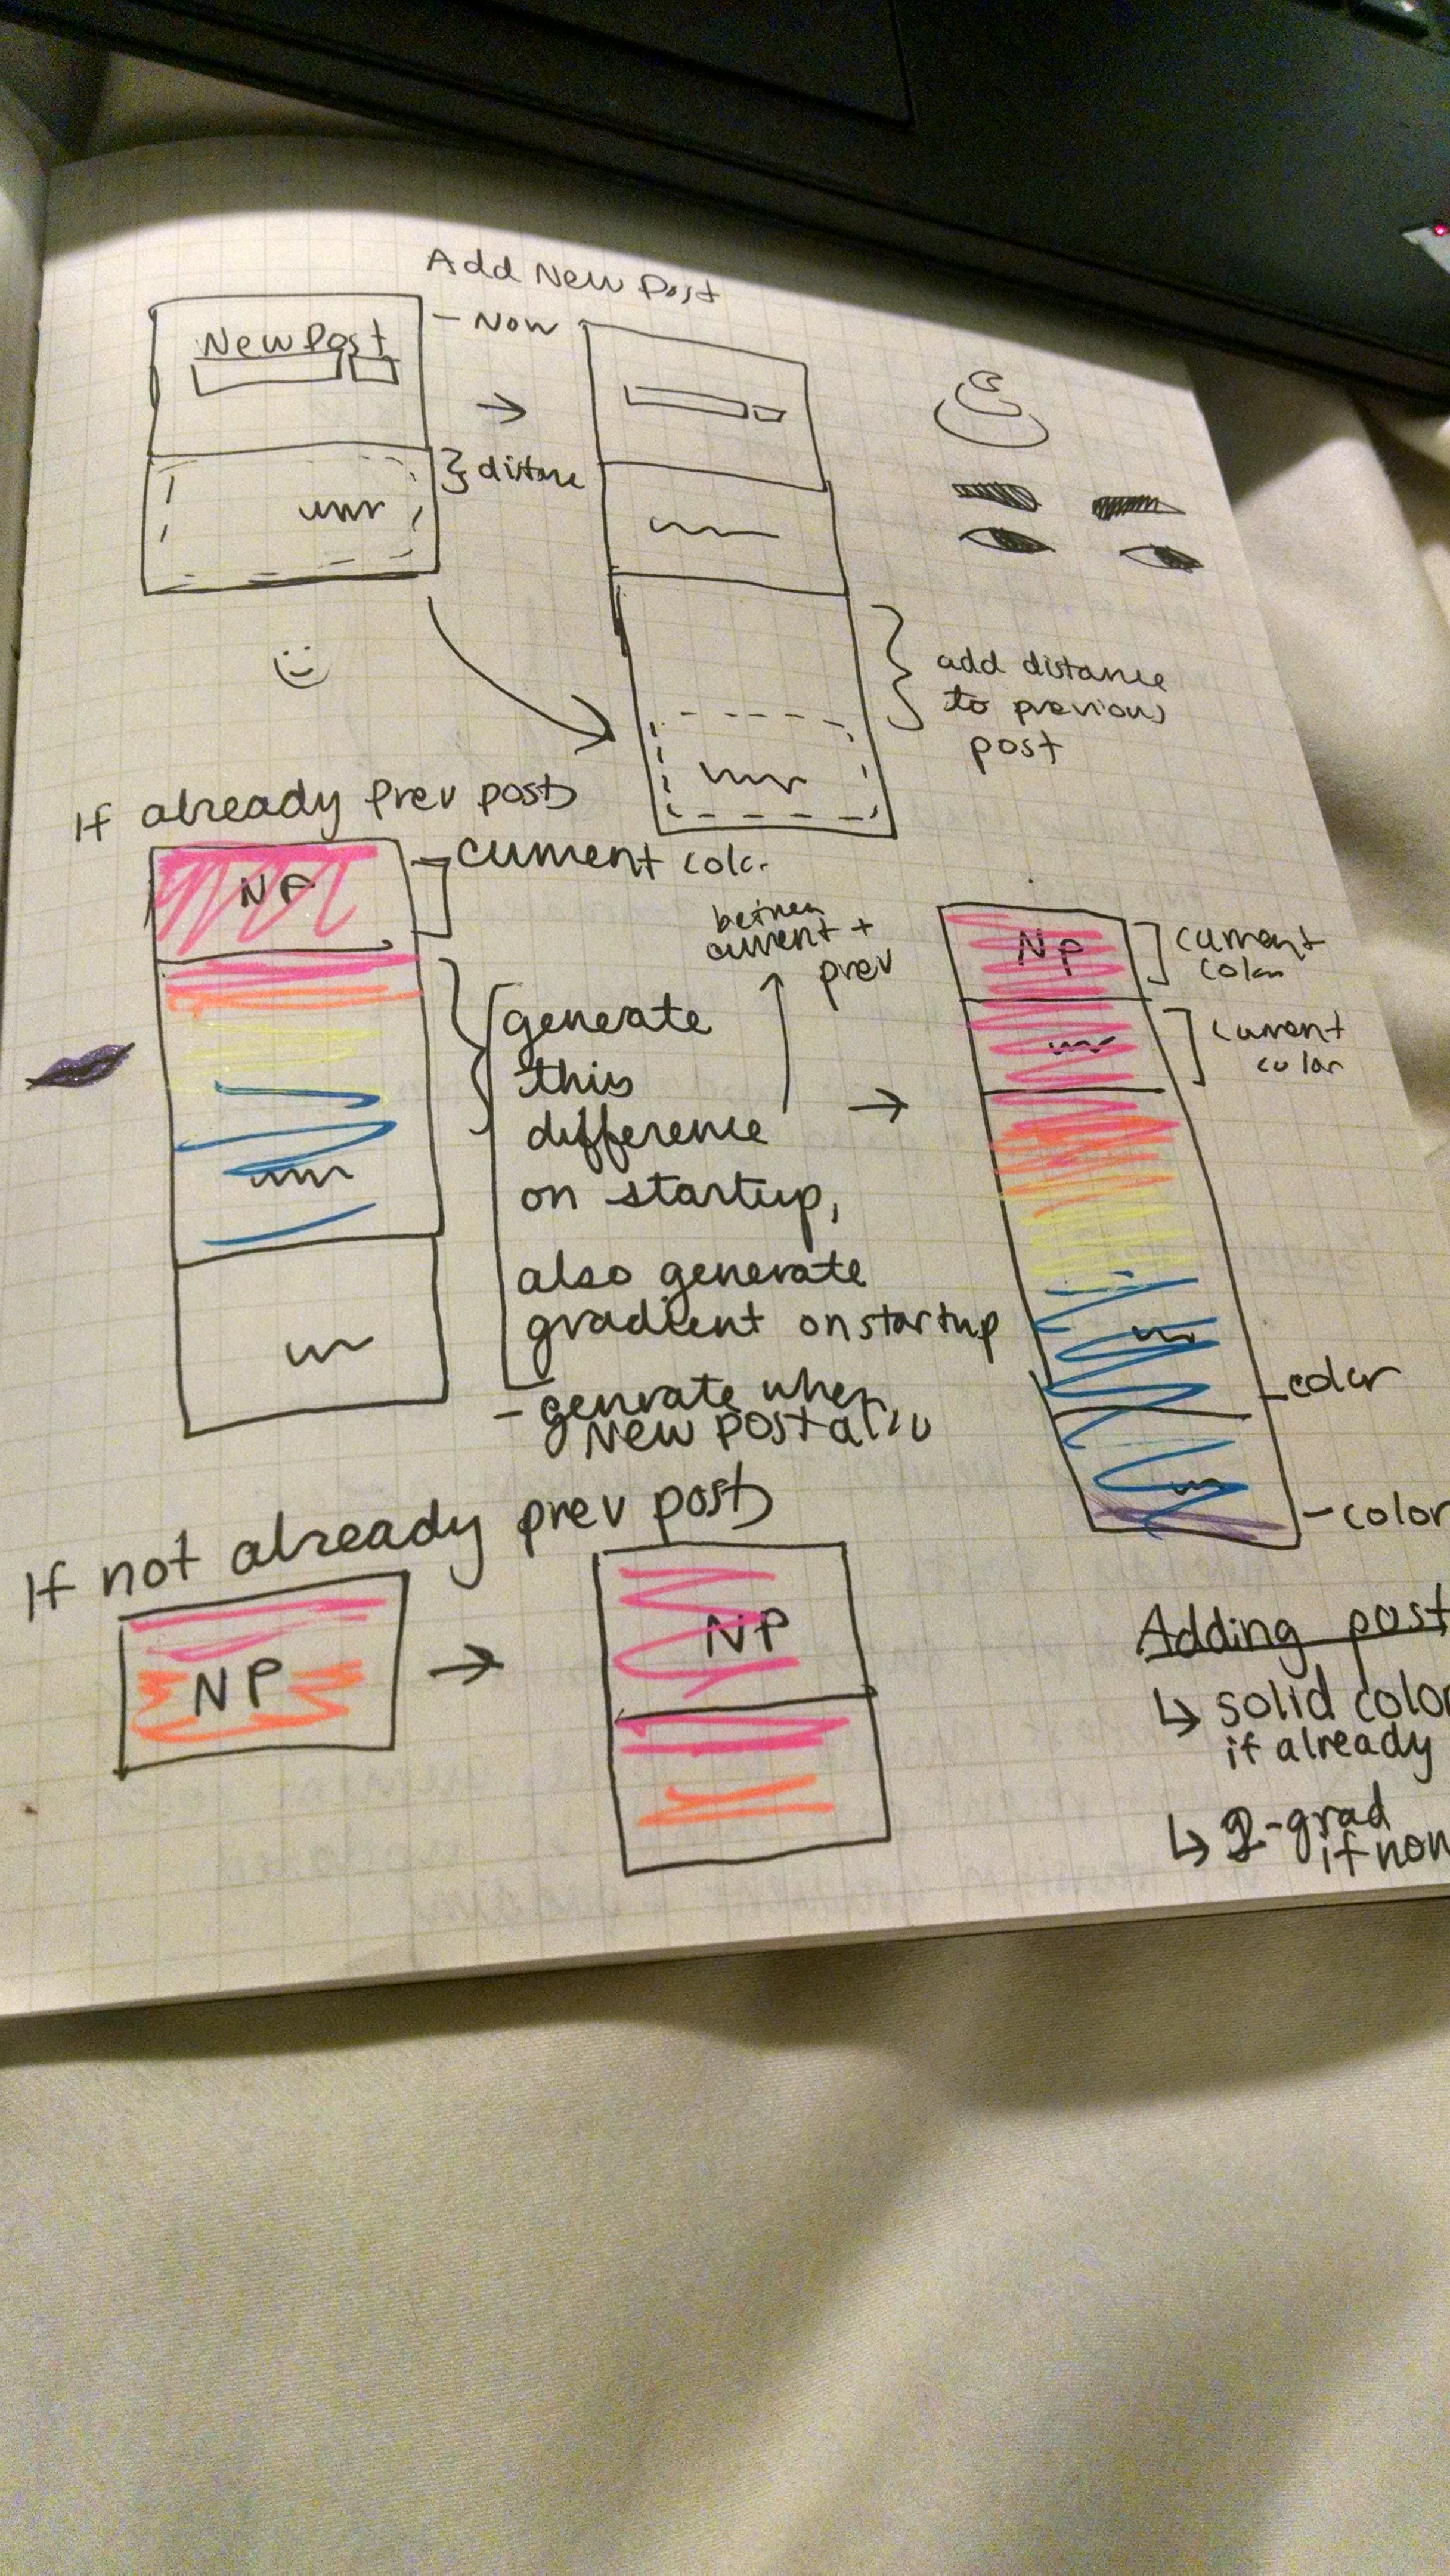 Add New Post
New Post
- Now
} distance
add distance
to previous
post
If already prev posts
NP
current color
between
current +
prev
generate
this
difference
on startup,
also generate
gradient on startup
- generate when
New Post also
NP
current
color
current
color
- color
- color
If not already prev posts
NP
NP
Adding post
↳ solid color
if already
↳ 2-grad
if non